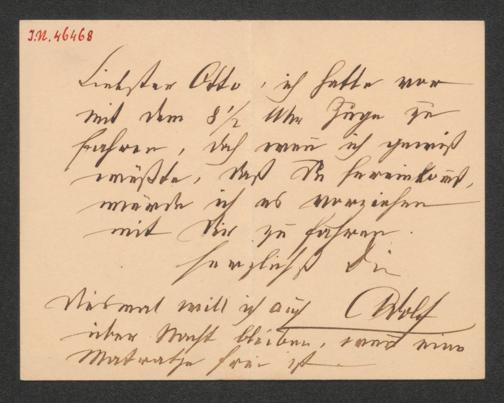 I.N. 46468
Liebster Otto, ich hatte vor
mit dem 8 1/2 Uhr Zuge zu
fahren, doch wenn ich gewiß
wüßte, daß Du hereinkommst,
würde ich es vorziehen
mit Dir zu fahren.
herzlichst Dein
Adolf
Diesmal will ich auch
über Nacht bleiben, wenn eine
Matratze frei ist.